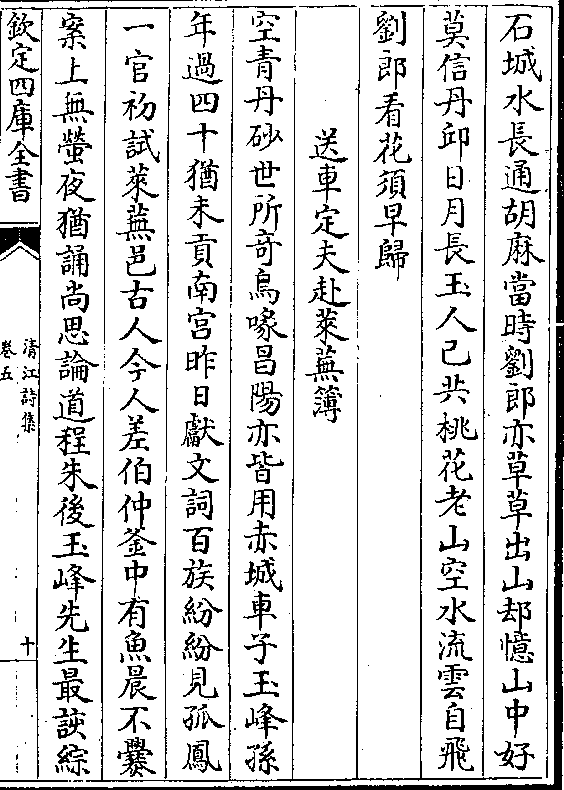 石城水長通胡麻當時劉郎亦草草出山却憶山中好
莫信丹邱日月長玉人已共桃花老山空水流雲自飛
劉郎看花須早歸
送車定夫赴萊蕪簿
空青丹砂世所竒烏喙昌陽亦皆用赤城車子玉峰孫
年過四十猶未貢南宮昨日獻文詞百族紛紛見孤鳳
一官初試萊蕪邑古人今人差伯仲釜中有魚晨不爨
案上無螢夜猶誦尚思論道程朱後玉峰先生最該綜
欽定四庫全書
清江詩集
卷五
十